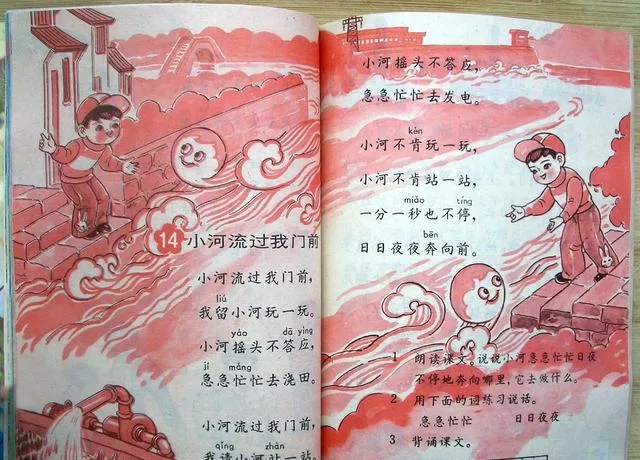 14 小河流过我门前
小河流过我门前,
liú
我留小河玩一玩。
yáo dā yìng
小河摇头不答应,
jí máng
急急忙忙去浇田。
小河流过我门前,
qǐng zhàn
我请小河站一站。
小河摇头不答应,
急急忙忙去发电。
kěn
小河不肯玩一玩,
小河不肯站一站,
miǎo tíng
一分一秒也不停,
bēn
日日夜夜奔向前。
1 朗读课文。说说小河急急忙忙日夜
不停地奔向哪里,它去做什么。
2 用下面的词练习说话。
急急忙忙 日日夜夜
3 背诵课文。